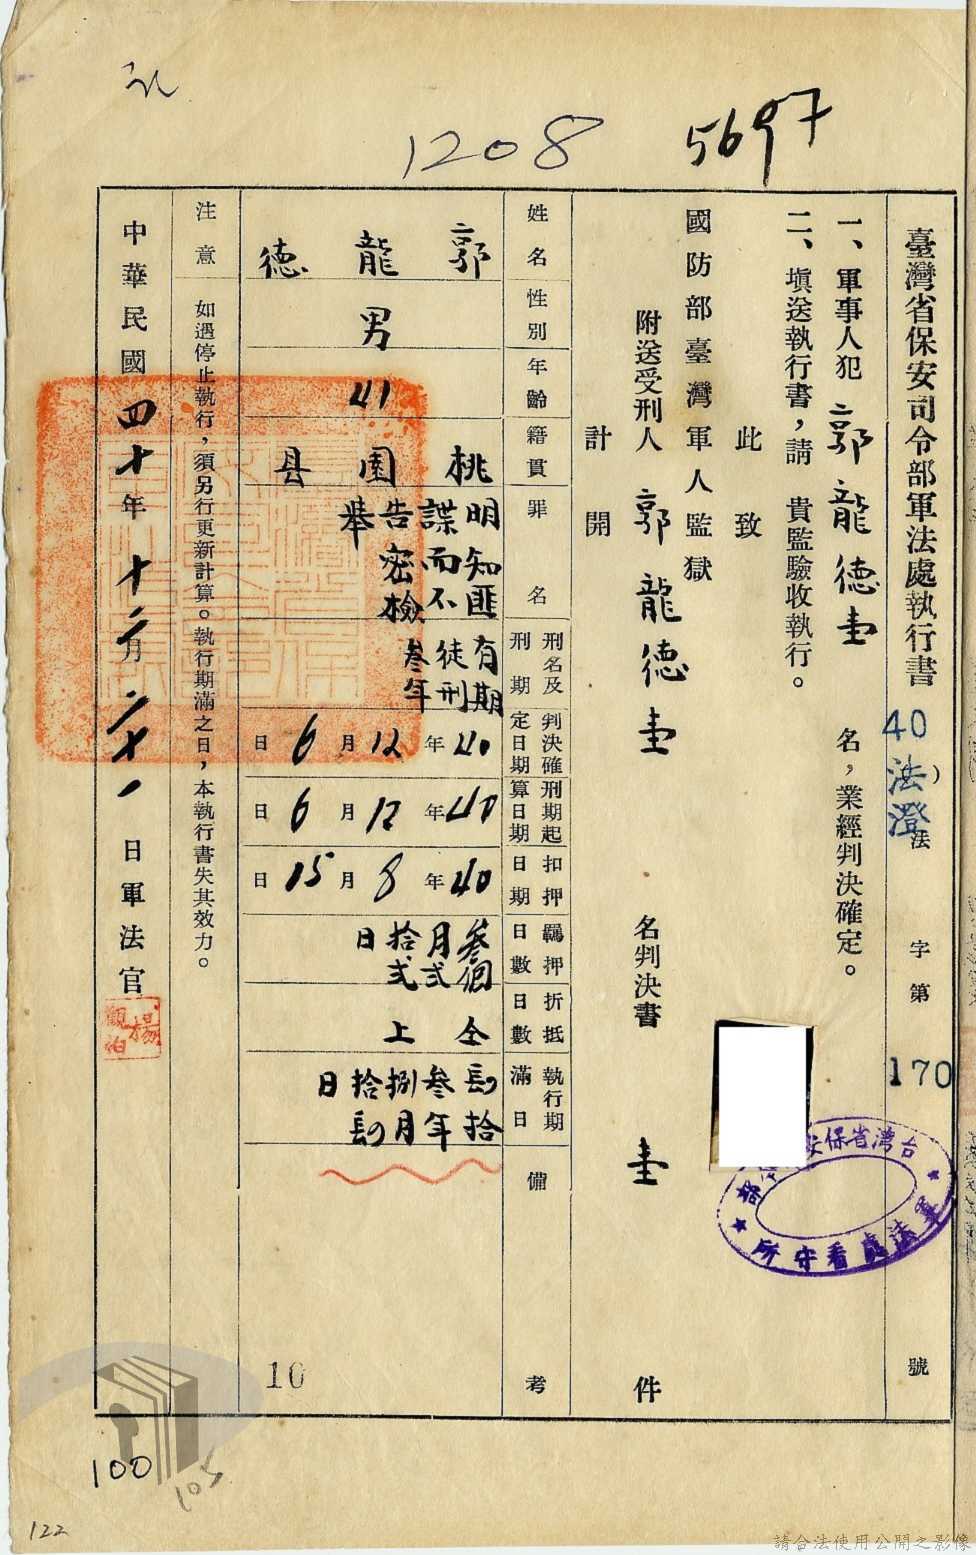 1208
5697
臺灣省保安司令部軍法處執行書
40
法澄
)法字第170號
一、軍事人犯郭龍德壹名，業經判決確定。
二、塡送執行書，請貴監驗收執行。
此致
國防部臺灣軍人監獄
附送受刑人郭龍德壹名判決書壹件
計開
姓名
郭龍德
性別
男
年齡
41
籍貫
桃園县
罪名
明知匪諜而不告密檢舉
刑名及刑期
有期徒刑叁年
判決確定日期
40年12月6日
刑期起算日期
40年12月6日
扣押日期
40年8月15日
羈押日數
叁個月弍拾弍日
折抵日數
仝上
執行期滿日
拾捌日
備考
10
注意
如遇停止執行，須另行更新計算。執行期滿之日，本執行書失其效力。
中華民國四十年十二月二十一日軍法官
楊
台灣省保安
部
軍法處看守所
100
105
122
請合法使用公開之影像